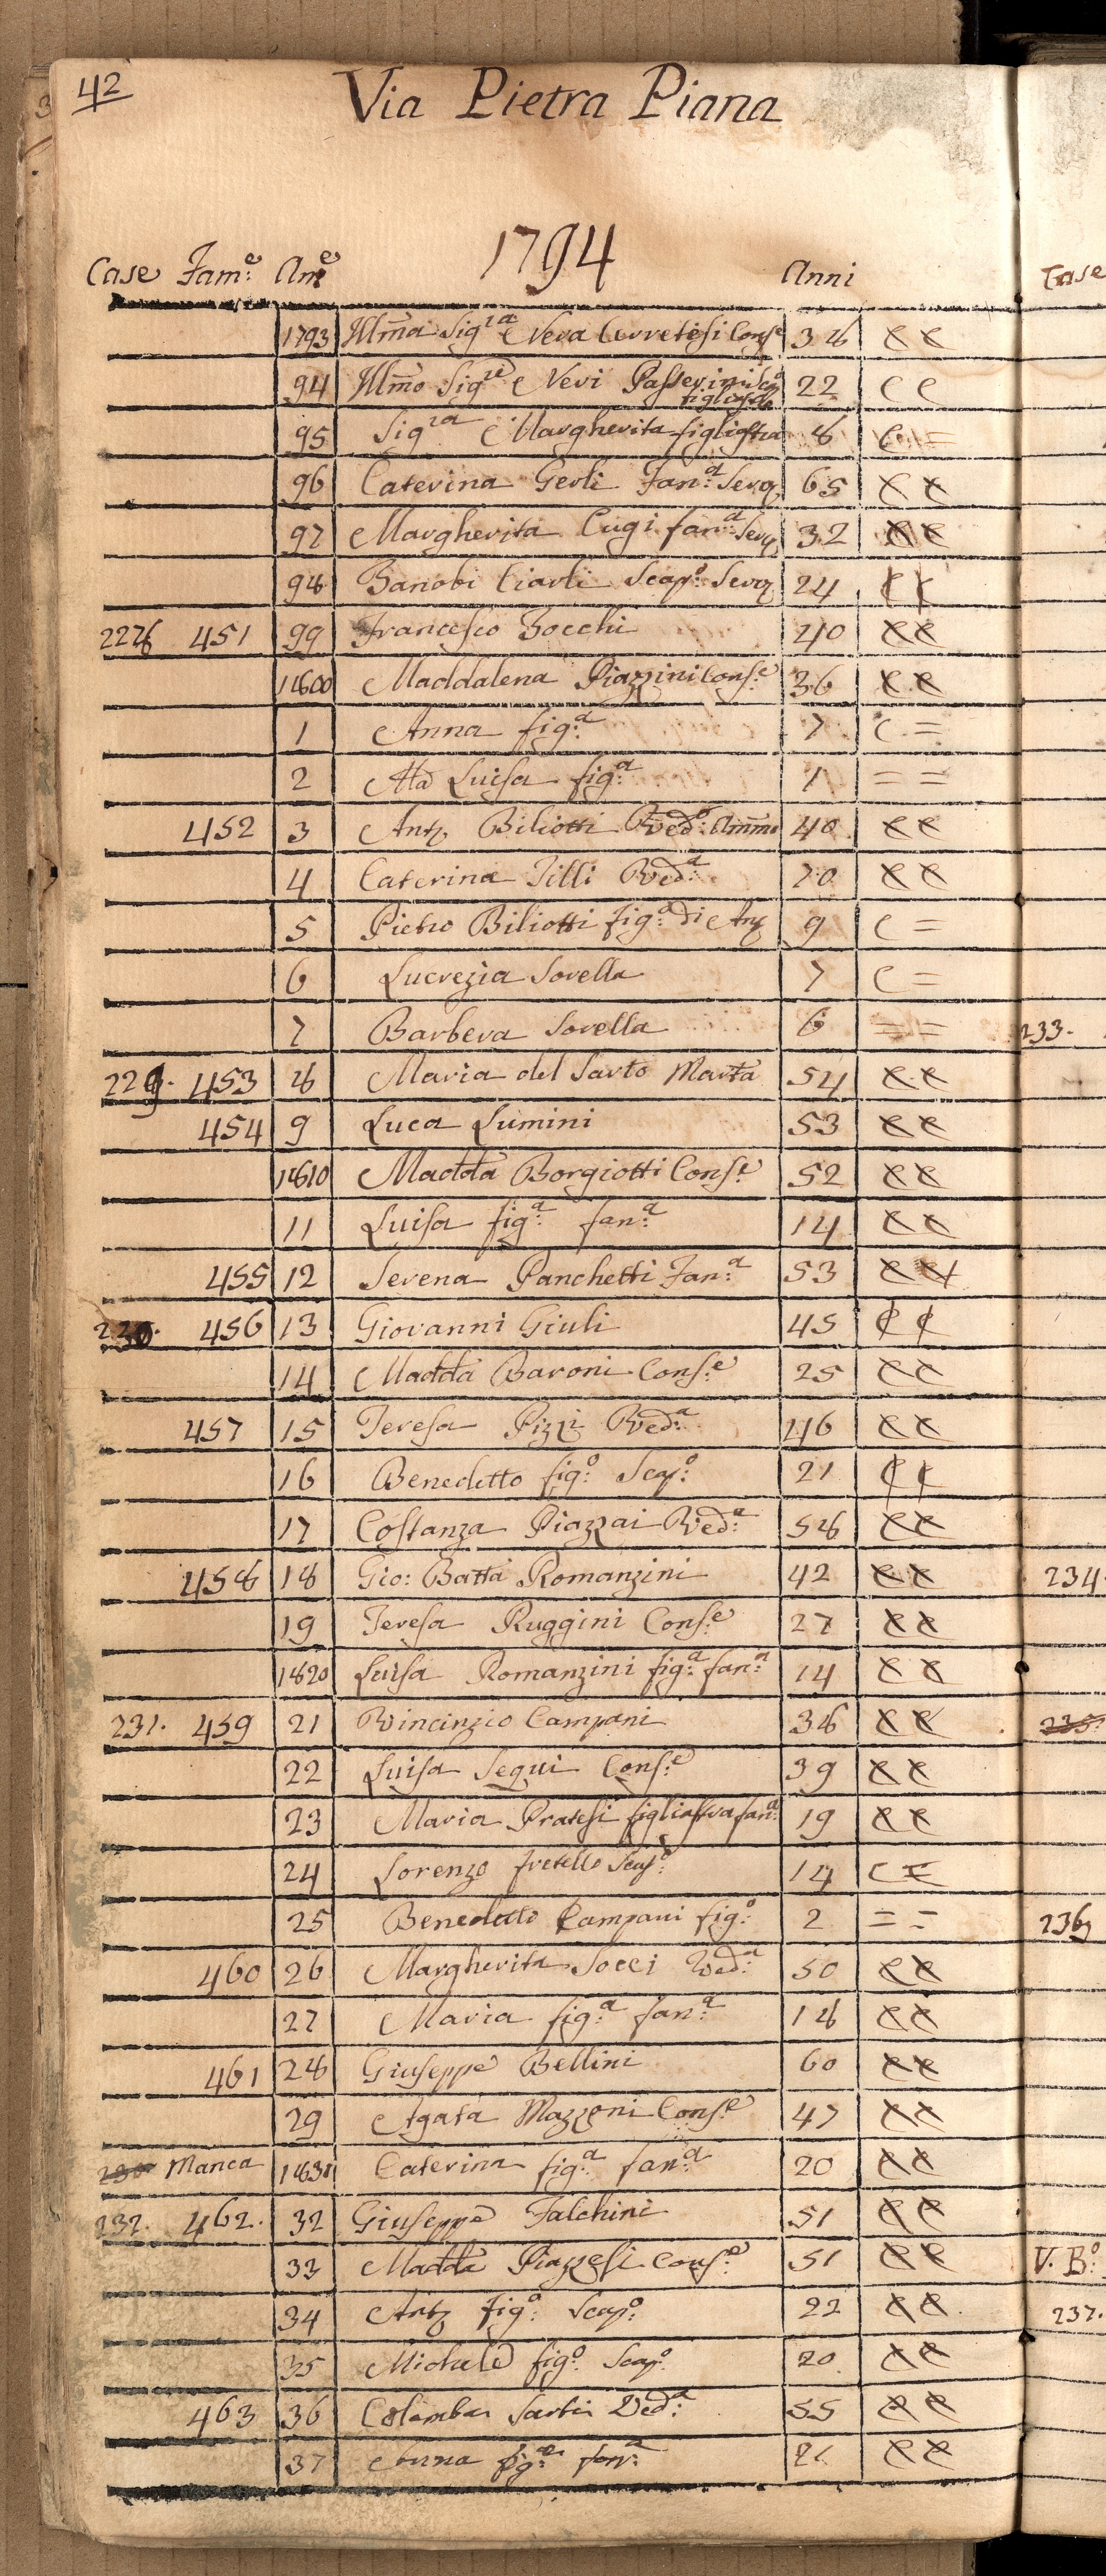 42
Via Pietra Piana
1794
Case Fam.e Am.e Anni
1793 Illma Sigra Neva Cerretesi Conse 38
94 Illmo Sigre Neri Passerini figliastro 22 C C
95 Sigra Margherita figliastra 8 C =
96 Caterina Gerli Fan:a Serva 65
97 Margherita Lugi fan:a Serva 32
98 Zanobi Ciarli Scap:o Serve 24
228 451 99 Francesco Bocchi 40
1800 Maddalena Piazzini Cons:e 36
1 Anna fig:a 7 C =
2 Ma Luisa fig:a 1 = =
452 3 Anto Biliotti Ved:o Ammo 40
4 Caterina Tilli Ved:a 70
5 Pietro Biliotti fig:o di Anto 9 C =
6 Lucrezia Sorella 7 C =
7 Barbera Sorella 6 = =
229. 453 8 Maria del Sarto Marta 54
454 9 Luca Lumini 53
1810 Madda Borgiotti Cons:e 52
11 Luisa fig:a fan:a 14
455 12 Serena Panchetti Fan:a 53
230. 456 13 Giovanni Giuli 45
14 Madda Baroni Cons:e 25
457 15 Teresa Pizzi Ved:a 46
16 Benedetto fig:o Scap:o 21
17 Costanza Piazzai Ved:a 58
458 18 Gio: Batta Romanzini 42
19 Teresa Ruggini Cons:e 27
1820 Luisa Romanzini fig:a fan:a 14
231. 459 21 Vincinzio Campani 38
22 Luisa Segui Cons:e 39
23 Maria Pratesi figliastra fan:a 19
24 Lorenzo fratello Scap:o 14
25 Benedetto Campani fig:o 2 = =
460 26 Margherita Socci Ved:a 50
27 Maria fig:a fan:a 18
461 28 Giuseppe Bellini 60
29 Agata Mazzoni Cons:e 47
Manca 1830 Caterina fig:a fan:a 20
232. 462. 32 Giuseppe Falchini 51
33 Madda Piazzesi Cons:e 51
34 Anto fig:o Scap:o 22
35 Michele fig:o Scap:o 20
463 36 Colomba Sarti Ved:a 55
37 Anna fig:a fan:a
Case
233.
234.
235.
236
V. B:o
237.